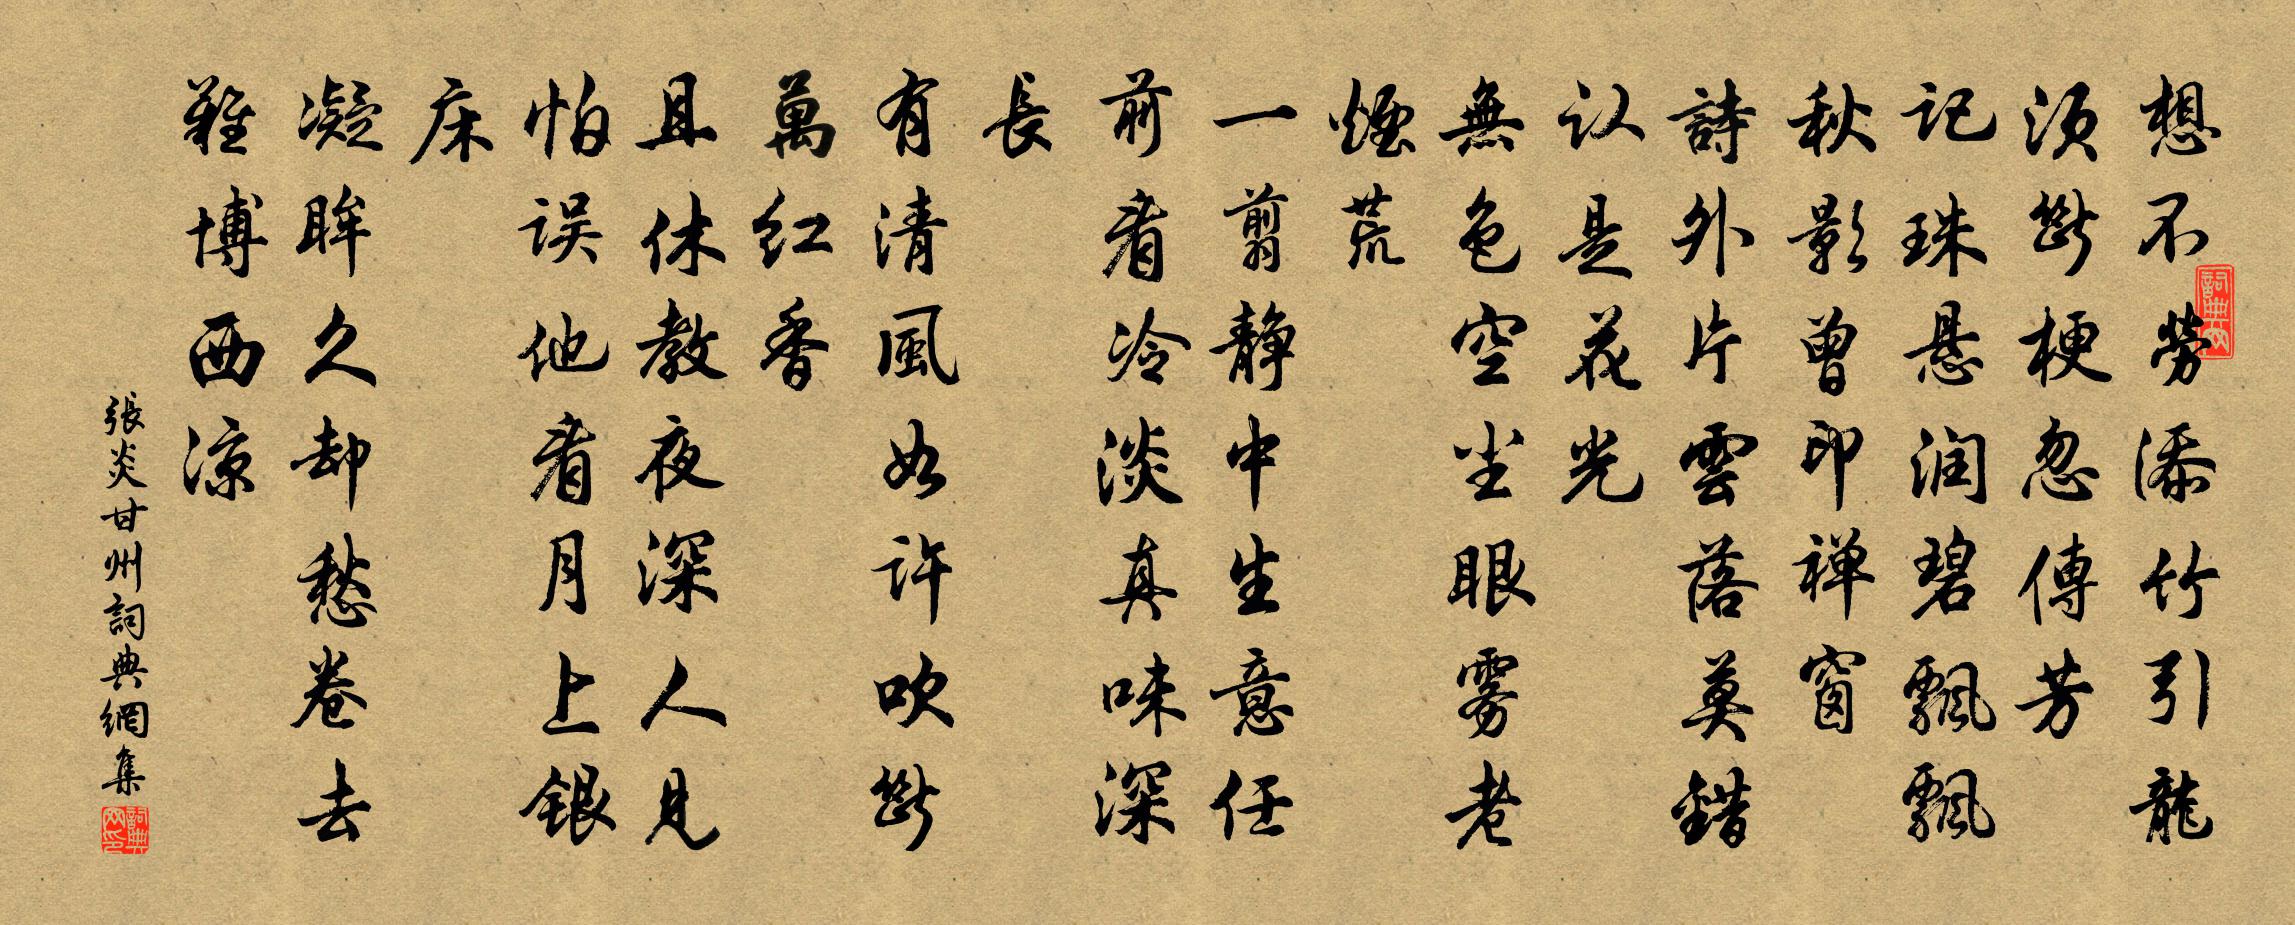 想不勞添竹引龍
须斷梗忽傳芳
记珠悬润碧飄飄
秋影曾印禅窗
詩外片雲落莫錯
认是花光
無色空尘眼雾老
煙荒
一翦静中生意任
前看冷淡真味深
長
有清風如許吹斷
萬红香
且休教夜深人見
怕误他看月上銀
床
凝眸久却愁卷去
難博西涼
張炎甘州詞典網集
詞典网
詞典网印